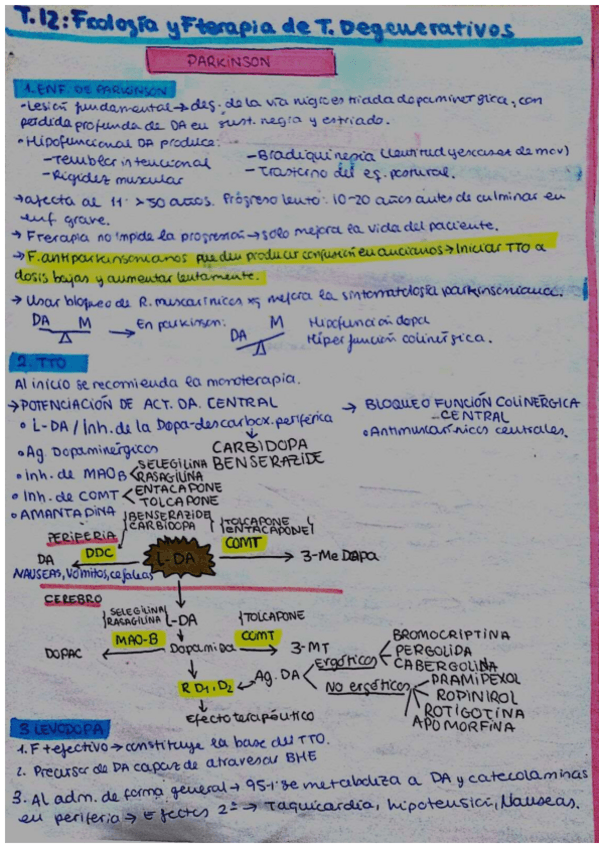 T.12: Fcología y Fterapia de T. Degenerativos
PARKINSON
1. ENF. DE PARKINSON
-Lesión fundamental → deg. de la vía nigroestriada dopaminérgica, con
pérdida profunda de DA en sust. negra y estriado.
• Hipofuncional DA produce:
- Temblor intencional
- Bradiquinesia (lentitud y escasez de mov)
- Rigidez muscular
- Trastorno del eq. postural.
→ afecta al 1% >50 años. Progreso lento: 10-20 años antes de culminar en
enf grave.
→ Fterapia no impide la progresión → solo mejora la vida del paciente.
→ F. antiparkinsonianos pueden producir confusión en ancianos → Iniciar TTO a
dosis bajas y aumentar lentamente.
→ Usar bloqueo de R. muscarínicos xq mejora la sintomatología parkinsoniana.
DA M → En parkinson: DA M Hipofunción dopa
Hiperfunción colinérgica.
2. TTO
Al inicio se recomienda la monoterapia.
→ POTENCIACIÓN DE ACT. DA. CENTRAL
→ BLOQUEO FUNCIÓN COLINÉRGICA
CENTRAL
• L-DA / Inh. de la Dopa-descarbox. periférica
• Antimuscarínicos centrales.
• Ag. Dopaminérgicos
CARBIDOPA
BENSERAZIDE
• Inh. de MAO B
SELEGILINA
RASAGILINA
• Inh. de COMT
ENTACAPONE
TOLCAPONE
• AMANTADINA
BENSERAZIDE
CARBIDOPA
TOLCAPONE
ENTACAPONE
PERIFERIA
DA ← DDC L-DA COMT → 3-Me Dopa
NAUSEAS, Vómitos, cefaleas
CEREBRO
SELEGILINA
RASAGILINA
L-DA
TOLCAPONE
DOPAC ← MAO-B Dopamina COMT → 3-MT
R D1, D2 ← Ag. DA
Ergóticos
BROMOCRIPTINA
PERGOLIDA
CABERGOLINA
No ergóticos
PRAMIPEXOL
ROPINIROL
ROTIGOTINA
APOMORFINA
Efecto terapéutico
3 LEVODOPA
1. F + efectivo → constituye la base del TTO.
2. Precursor de DA capaz de atravesar BHE
3. Al adm. de forma general → 95% se metaboliza a DA y catecolaminas
en periferia → Efectos 2º → Taquicardia, hipotensión, Nauseas.